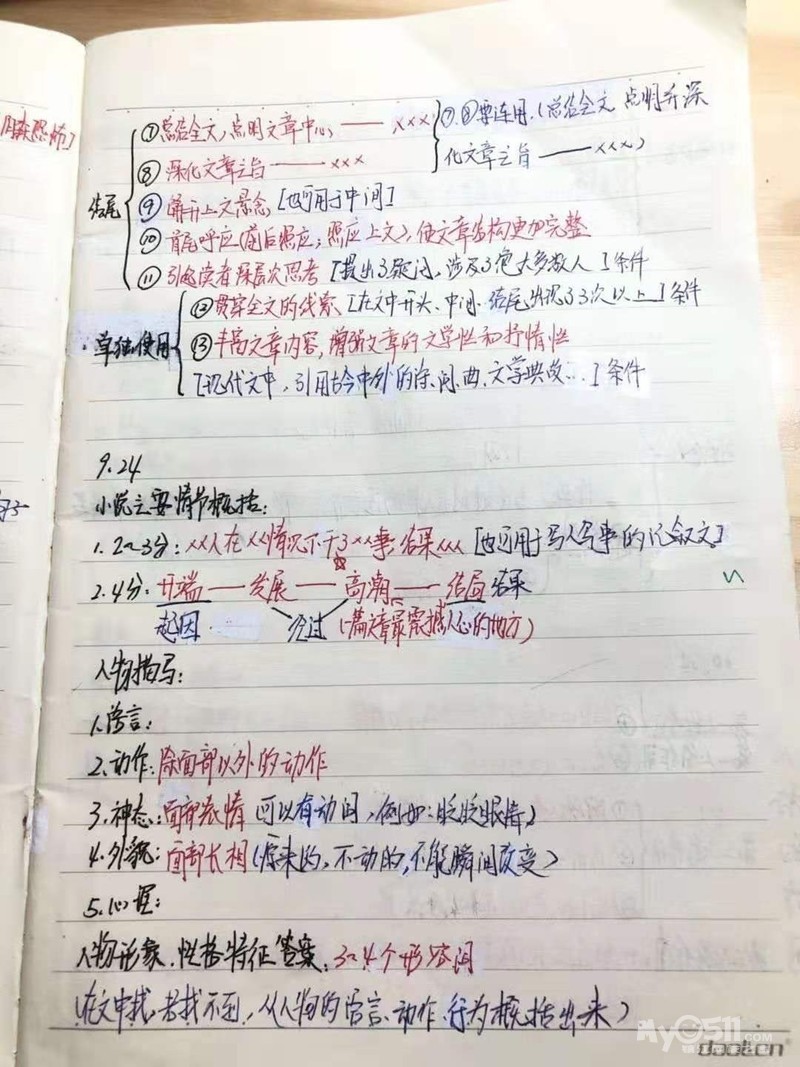 阴森恐怖]
⑦总结全文,点明文章中心 —— ×××
⑦.⑧要连用.(总结全文 点明并深
⑧深化文章主旨 —— ×××
化文章主旨 —— ×××)
结尾
⑨解开上文悬念[也可用于中间]
⑩首尾呼应(前后照应;照应上文),使文章结构更加完整
⑪引起读者深层次思考[提出了疑问,涉及了绝大多数人]条件
⑫贯穿全文的线索.[在文中开头、中间、结尾出现了3次以上]条件
单独使用
⑬丰富文章内容,增强文章的文学性和抒情性
[现代文中,引用古今中外的诗、词、曲、文学典故...]条件
9.24
小说主要情节概括:
1.2~3分:××人在××情况下干了××事,结果×××[也可用于写人写事的记叙文]
2.4分:开端——发展——高潮——结局 结果
起因 经过 (一篇文章最震撼人心的地方)
人物描写:
1.语言:
2.动作:除面部以外的动作
3.神态:面部表情 可以有动词,例如:眨眨眼睛)
4.外貌:面部长相(原来的,不动的,不能瞬间改变)
5.心理:
人物形象.性格特征答案:3~4个形容词
(在文中找,若找不到,从人物的语言、动作、行为概括出来)
My0511.com
dool.cn